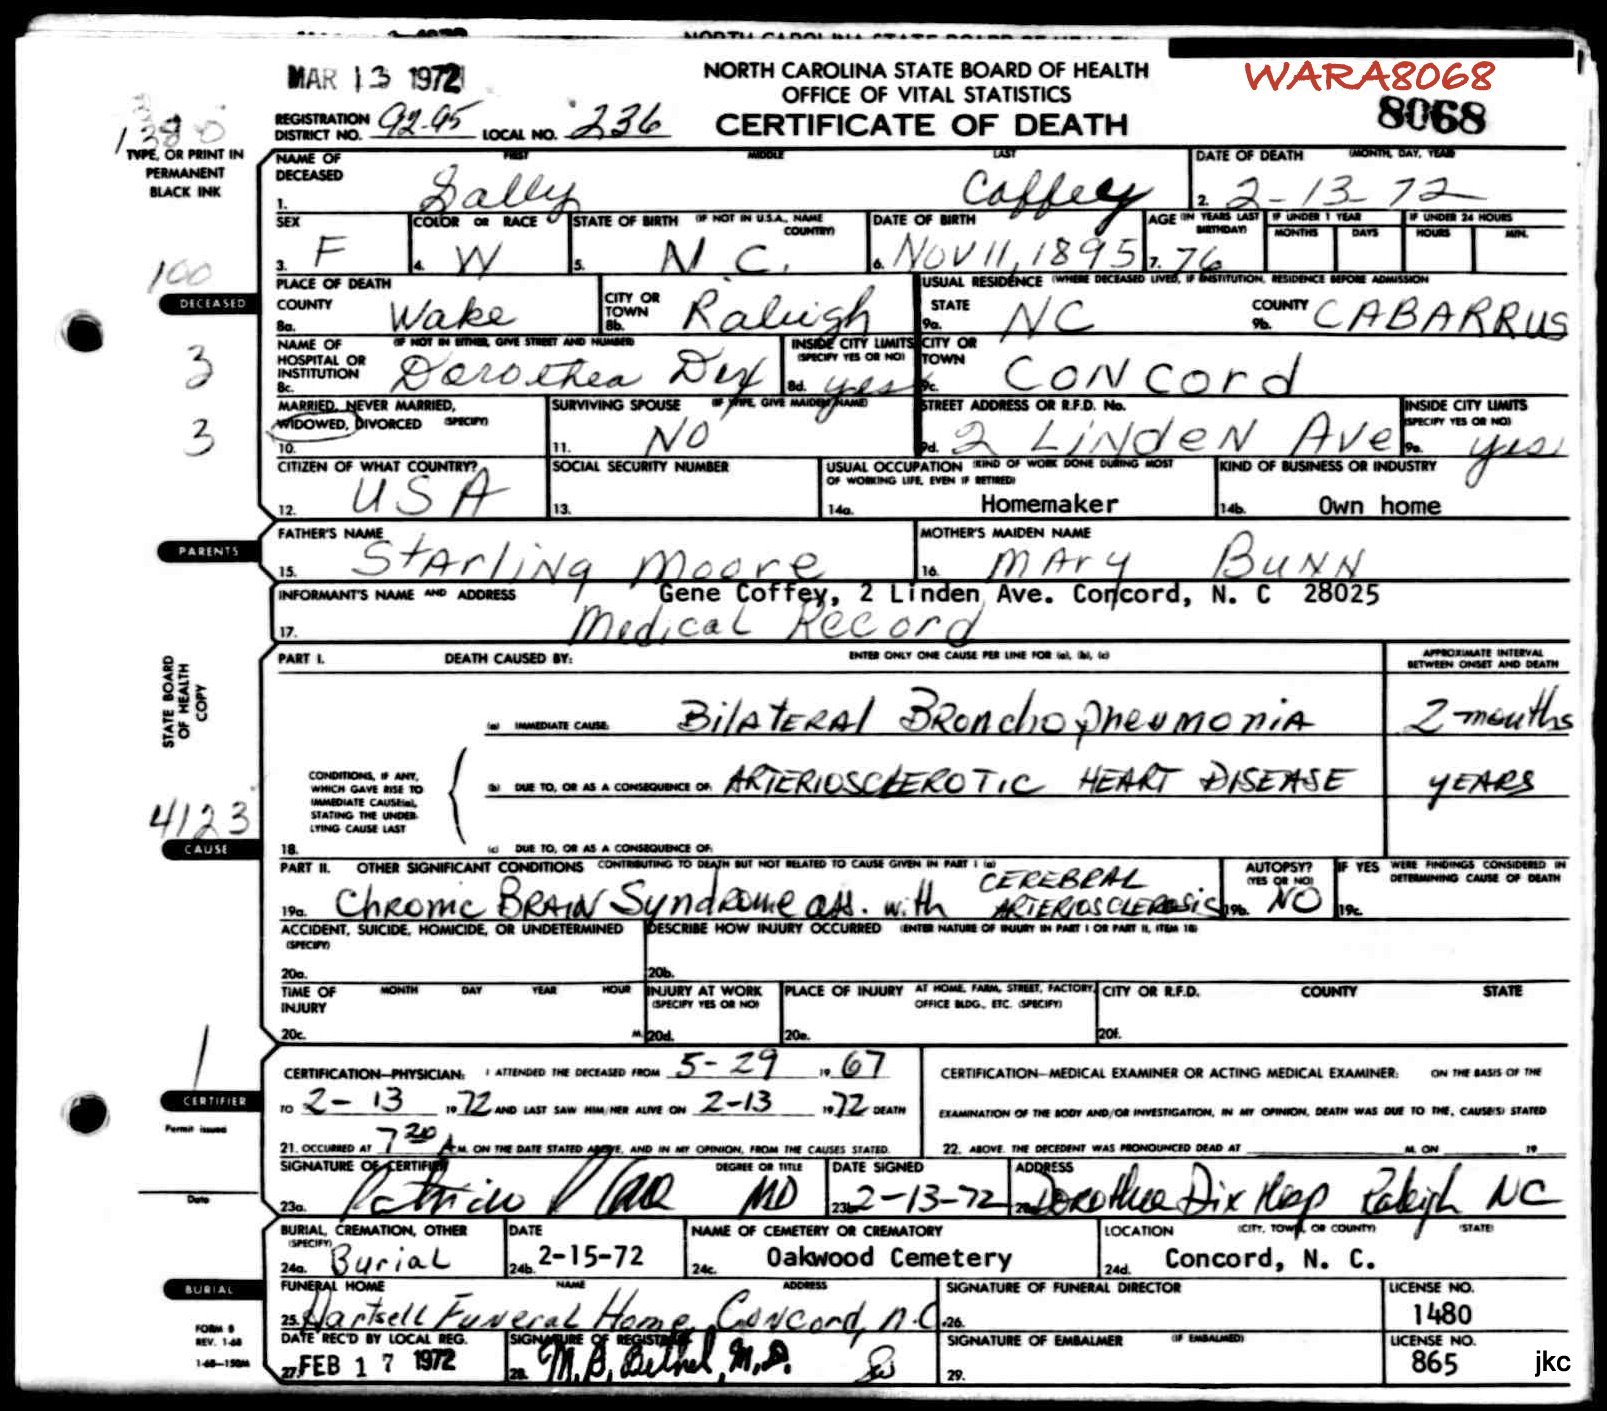 MAR 13 1972
NORTH CAROLINA STATE BOARD OF HEALTH
WARA8068
OFFICE OF VITAL STATISTICS
8068
REGISTRATION DISTRICT NO. 92-95 LOCAL NO. 236
CERTIFICATE OF DEATH
TYPE, OR PRINT IN
PERMANENT
BLACK INK
NAME OF DECEASED FIRST MIDDLE LAST DATE OF DEATH (MONTH, DAY, YEAR)
1. Sally Coffey 2. 2-13-72
SEX COLOR OR RACE STATE OF BIRTH (IF NOT IN U.S.A., NAME COUNTRY) DATE OF BIRTH AGE (IN YEARS LAST BIRTHDAY) IF UNDER 1 YEAR MONTHS DAYS IF UNDER 24 HOURS HOURS MIN.
3. F 4. W 5. N C. 6. NOV 11, 1895 7. 76
100
DECEASED
PLACE OF DEATH USUAL RESIDENCE (WHERE DECEASED LIVED, IF INSTITUTION, RESIDENCE BEFORE ADMISSION
COUNTY CITY OR TOWN STATE COUNTY
8a. Wake 8b. Raleigh 9a. NC 9b. CABARRUS
NAME OF HOSPITAL OR INSTITUTION (IF NOT IN EITHER, GIVE STREET AND NUMBER) INSIDE CITY LIMITS (SPECIFY YES OR NO) CITY OR TOWN
8c. Dorothea Dix 8d. yes 9c. Concord
3
3
MARRIED, NEVER MARRIED, WIDOWED, DIVORCED (SPECIFY) SURVIVING SPOUSE (IF WIFE, GIVE MAIDEN NAME) STREET ADDRESS OR R.F.D. No. INSIDE CITY LIMITS (SPECIFY YES OR NO)
10. 11. NO 9d. 2 Linden Ave 9e. yes
CITIZEN OF WHAT COUNTRY? SOCIAL SECURITY NUMBER USUAL OCCUPATION (KIND OF WORK DONE DURING MOST OF WORKING LIFE, EVEN IF RETIRED) KIND OF BUSINESS OR INDUSTRY
12. USA 13. 14a. Homemaker 14b. Own home
PARENTS
FATHER'S NAME MOTHER'S MAIDEN NAME
15. Starling Moore 16. Mary Bunn
INFORMANT'S NAME AND ADDRESS Gene Coffey, 2 Linden Ave. Concord, N. C 28025
17. Medical Record
STATE BOARD OF HEALTH COPY
PART I. DEATH CAUSED BY: ENTER ONLY ONE CAUSE PER LINE FOR (a), (b), (c) APPROXIMATE INTERVAL BETWEEN ONSET AND DEATH
(a) IMMEDIATE CAUSE: Bilateral Bronchopneumonia 2 months
CONDITIONS, IF ANY, WHICH GAVE RISE TO IMMEDIATE CAUSE(a), STATING THE UNDERLYING CAUSE LAST
(b) DUE TO, OR AS A CONSEQUENCE OF: ARTERIOSCLEROTIC HEART DISEASE YEARS
4123
CAUSE
18. (c) DUE TO, OR AS A CONSEQUENCE OF:
PART II. OTHER SIGNIFICANT CONDITIONS CONTRIBUTING TO DEATH BUT NOT RELATED TO CAUSE GIVEN IN PART I (a) AUTOPSY? (YES OR NO) IF YES WERE FINDINGS CONSIDERED IN DETERMINING CAUSE OF DEATH
19a. Chronic Brain Syndrome ass. with CEREBRAL ARTERIOSCLEROSIS 19b. NO 19c.
ACCIDENT, SUICIDE, HOMICIDE, OR UNDETERMINED (SPECIFY) DESCRIBE HOW INJURY OCCURRED (ENTER NATURE OF INJURY IN PART I OR PART II, ITEM 18)
20a. 20b.
TIME OF INJURY MONTH DAY YEAR HOUR INJURY AT WORK (SPECIFY YES OR NO) PLACE OF INJURY AT HOME, FARM, STREET, FACTORY, OFFICE BLDG., ETC. (SPECIFY) CITY OR R.F.D. COUNTY STATE
20c. M. 20d. 20e. 20f.
CERTIFICATION—PHYSICIAN: I ATTENDED THE DECEASED FROM 5-29 19 67 CERTIFICATION—MEDICAL EXAMINER OR ACTING MEDICAL EXAMINER: ON THE BASIS OF THE
CERTIFIER
TO 2-13 19 72 AND LAST SAW HIM/HER ALIVE ON 2-13 19 72 DEATH EXAMINATION OF THE BODY AND/OR INVESTIGATION, IN MY OPINION, DEATH WAS DUE TO THE, CAUSE(S) STATED
Permit issued
21. OCCURRED AT 7 20 A M. ON THE DATE STATED ABOVE, AND IN MY OPINION, FROM THE CAUSES STATED. 22. ABOVE. THE DECEDENT WAS PRONOUNCED DEAD AT M. ON 19
SIGNATURE OF CERTIFIER DEGREE OR TITLE DATE SIGNED ADDRESS
Date
23a. MD 23b. 2-13-72 Dorothea Dix Hosp Raleigh NC
BURIAL, CREMATION, OTHER (SPECIFY) DATE NAME OF CEMETERY OR CREMATORY LOCATION (CITY, TOWN, OR COUNTY) (STATE)
24a. Burial 24b. 2-15-72 24c. Oakwood Cemetery 24d. Concord, N. C.
BURIAL
FUNERAL HOME NAME ADDRESS SIGNATURE OF FUNERAL DIRECTOR LICENSE NO.
25. Hartsell Funeral Home, Concord, N.C. 26. 1480
FORM 8
REV. 1-68
1-68—150M
DATE REC'D BY LOCAL REG. SIGNATURE OF REGISTRAR SIGNATURE OF EMBALMER (IF EMBALMED) LICENSE NO.
27. FEB 17 1972 28. M. B. Bethel, M.D. 29. 865
jkc